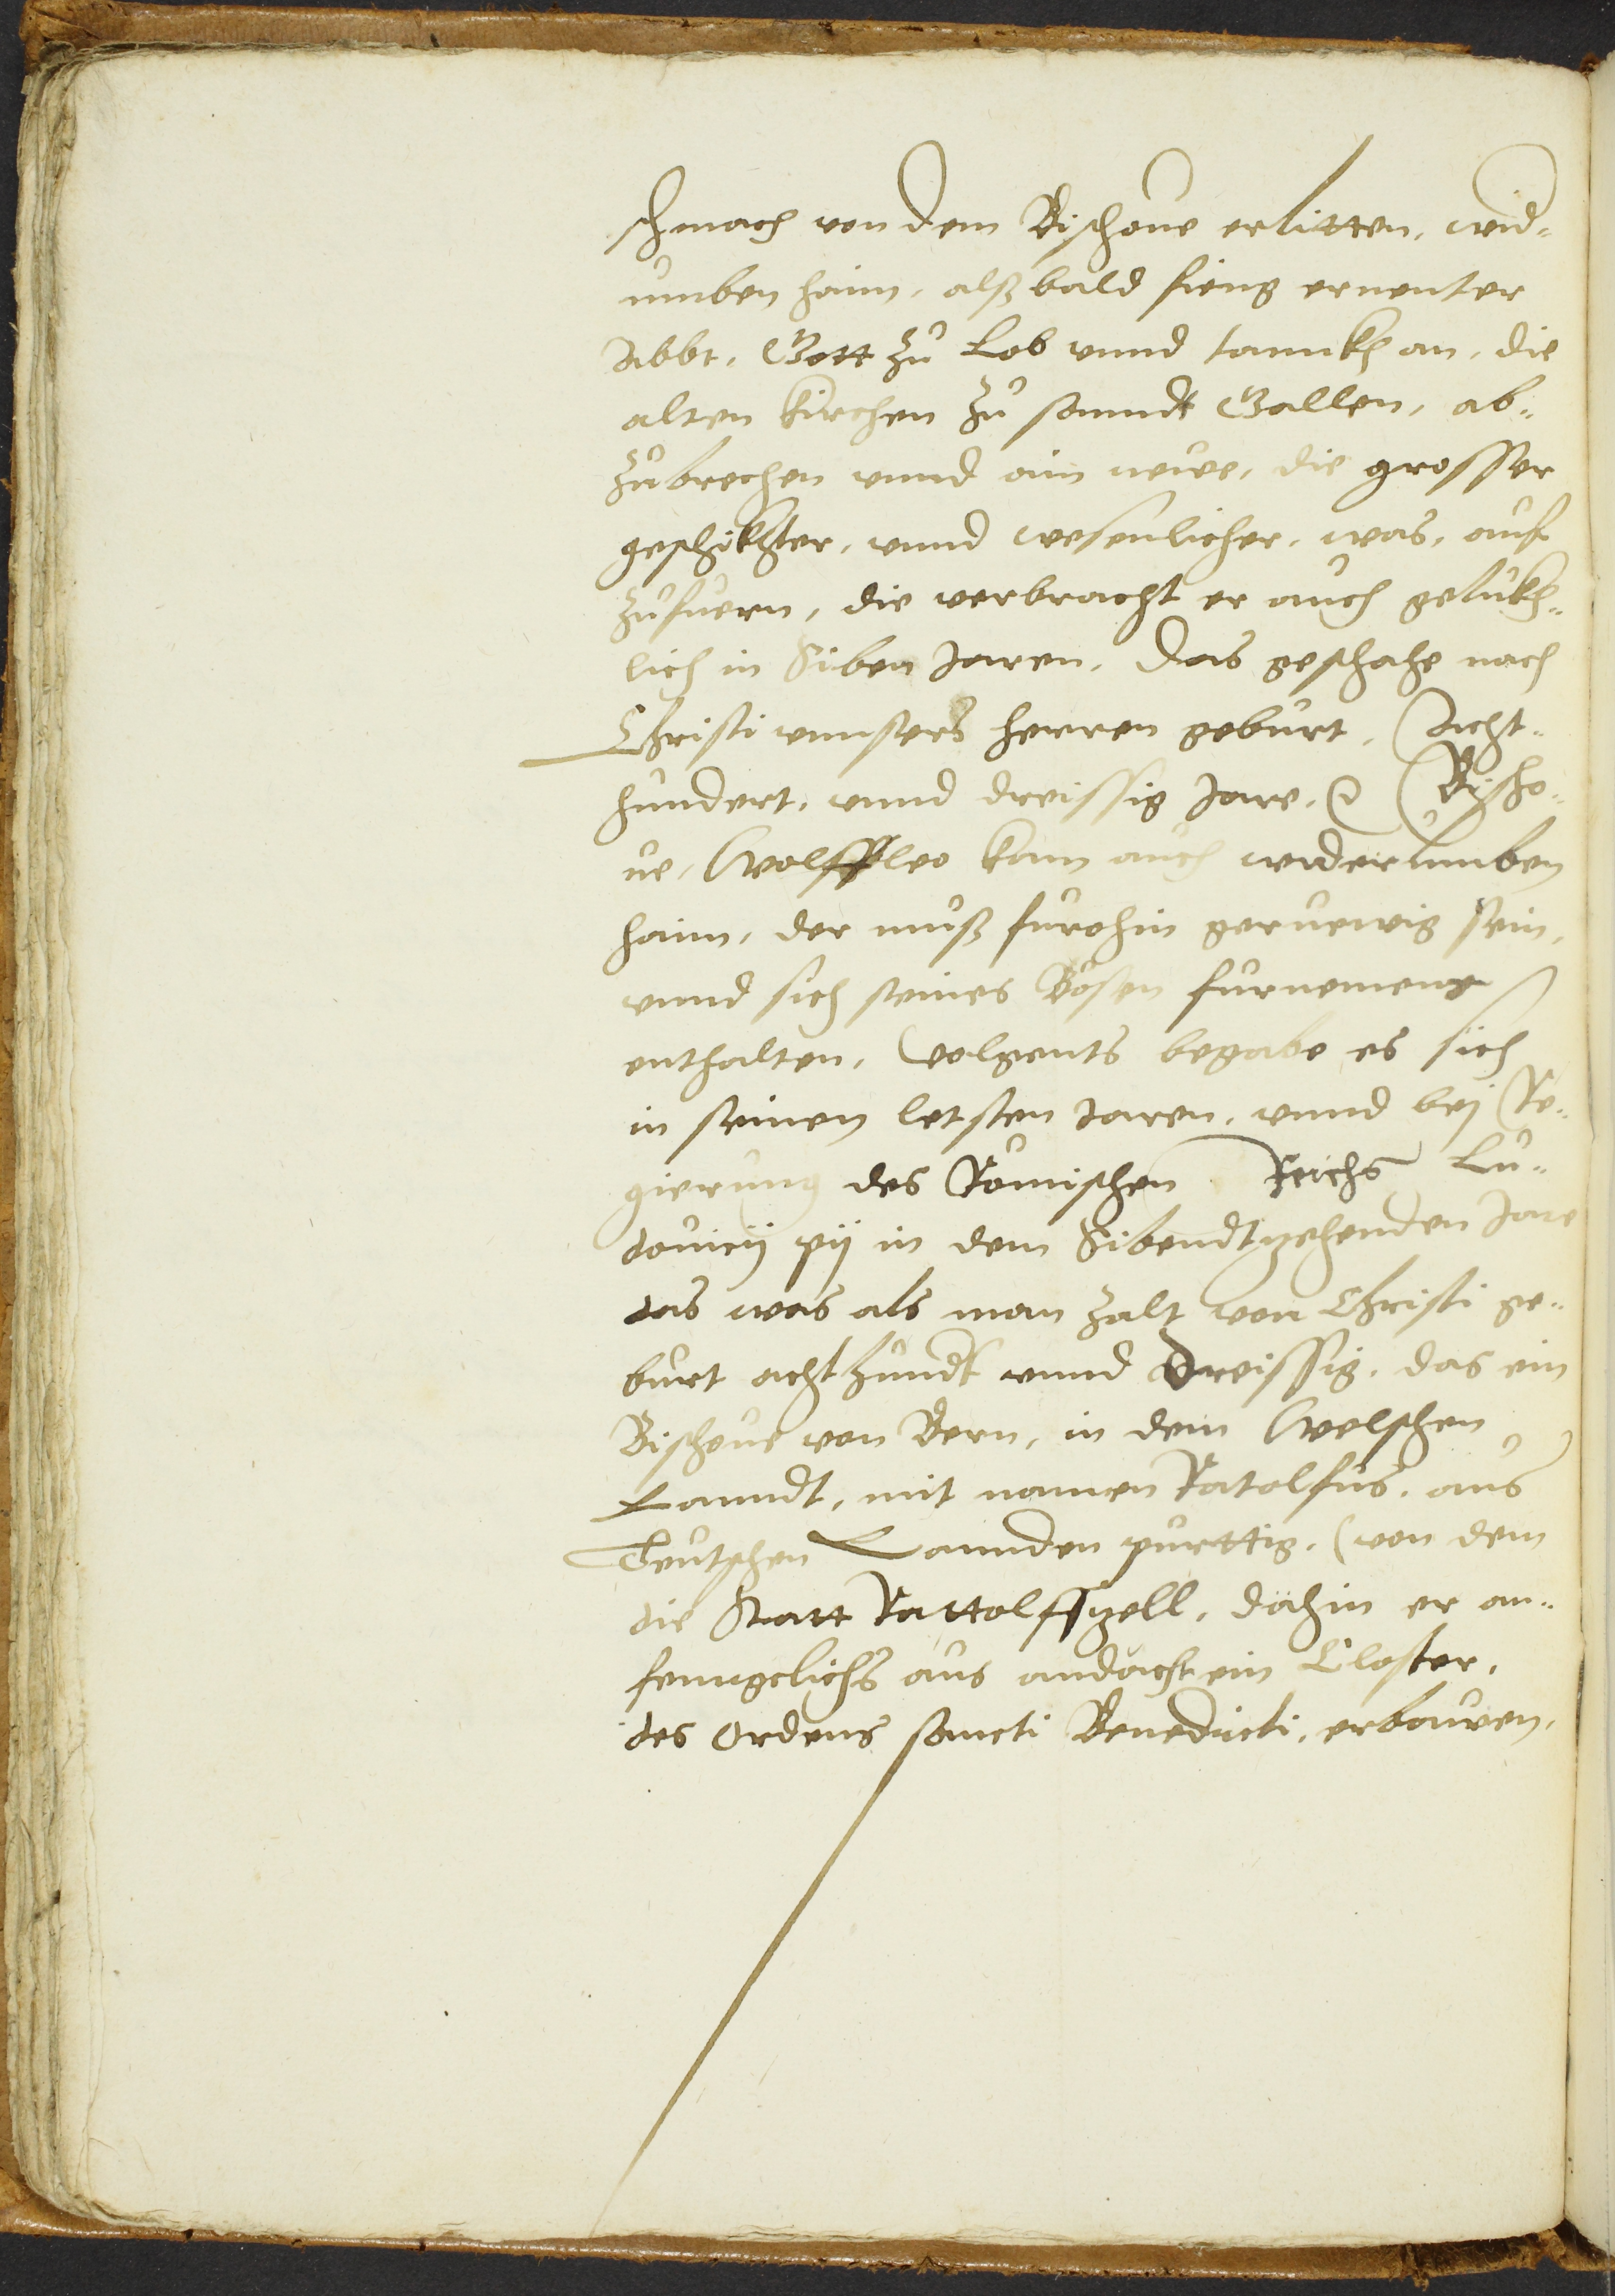 schmach von dem Bischoue erlitten, wid-
umben haim, alßbald fieng ernenter
Abbt, Gott zů Lob vnnd dannkh an, die
alten kirchen zů sanndt Gallen, ab-
zůbrechen vnnd ain newe, die grosser
geschikhter, vnnd wesenlicher, was, auf
zůfuern, die verbracht er auch gelukh-
lich in Siben Jaren. Das geschahe nach
Christi vnnsers herren geburt, Acht-
hundert, vnnd dreissig Jare. Bischo-
ue, Wolffleo kam auch widerumben
haim, der muß furohin geruewig sein,
vnnd sich seines Bösen furnemens
enthalten, Volgents begabe es sich
in seinen letsten Jaren, vnnd bej Re-
gierung des Römischen Reichs Lu-
douicij pij in dem Sibendtzehenden Jare
das was als man zalt von Christi ge-
burt achthundt vnnd Dreissig, das ein
Bischoue von Bern, in dem Welschen
Lanndt, mit namen Ratolfus, aus
Teutschen Lannden purttig, (von dem
die Statt Rattolffzell, dahin er an-
fenngclichs aus andacht ein Closter,
des Ordens sancti Benedicti, erbauwen,